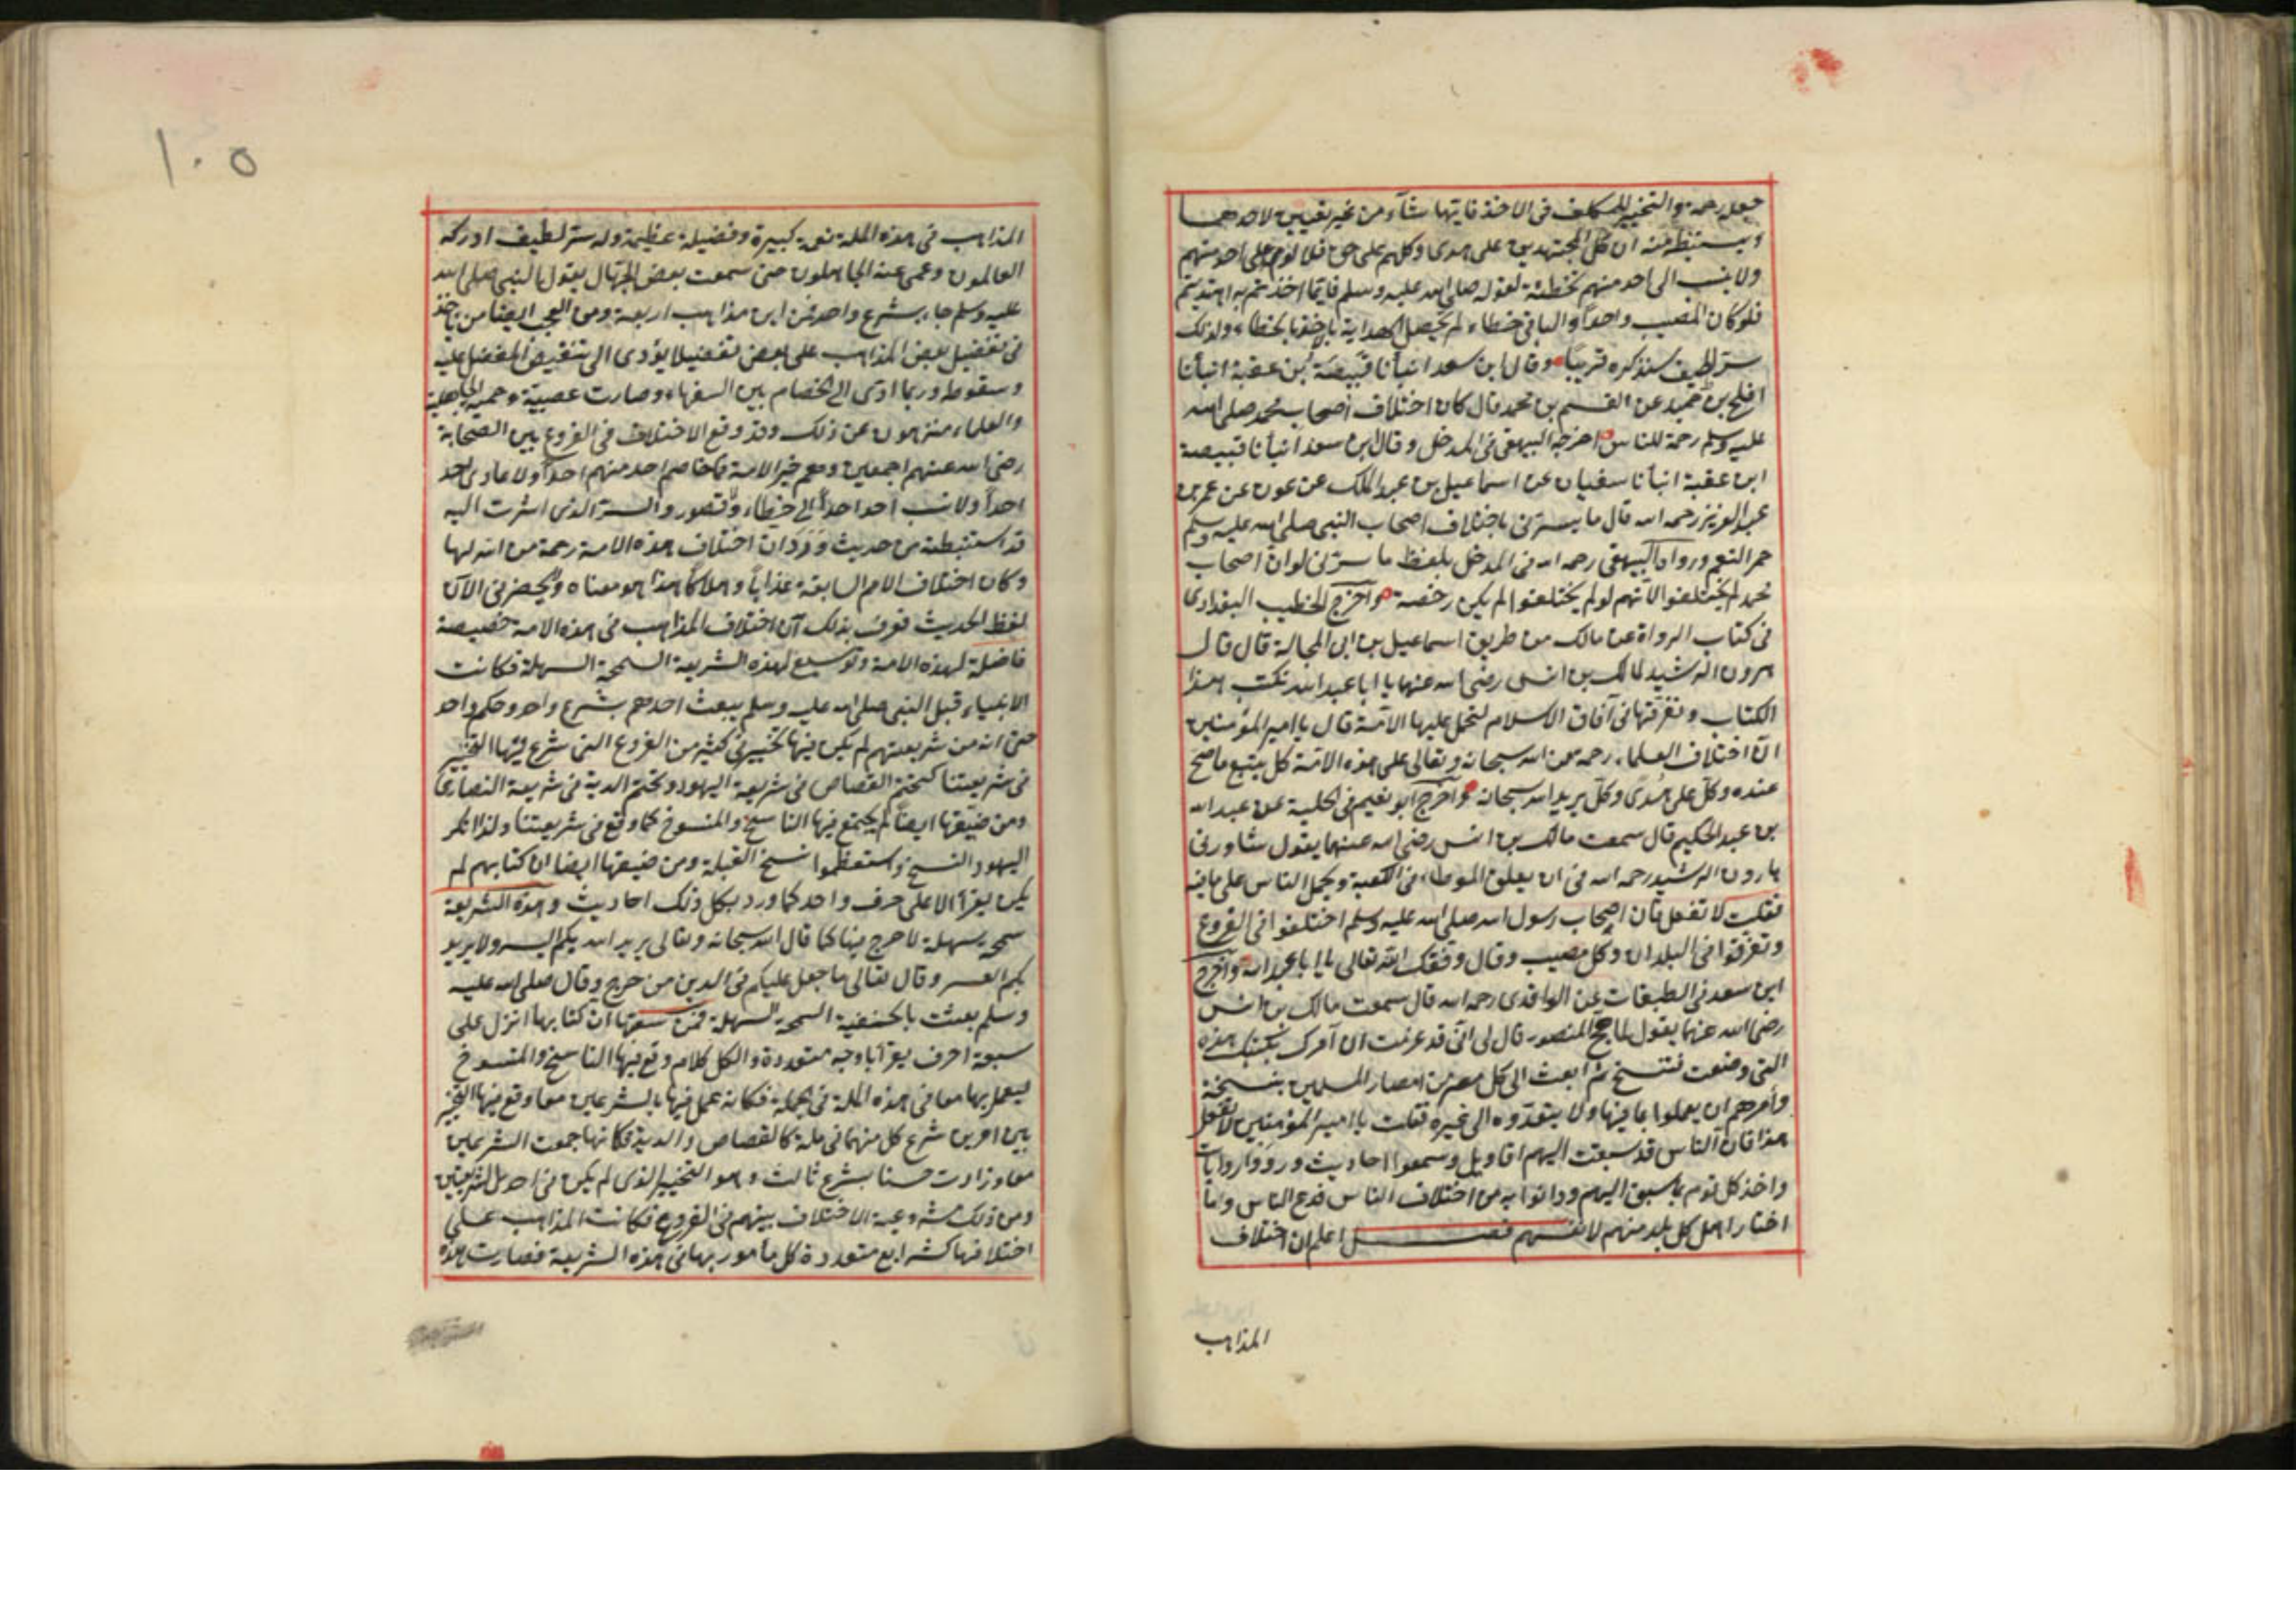 جعله رحمة والتخيير للمكلف فى الاخذ فايتها شآء من غير تعيين لاحدهما
ويستنبط منه ان كل المجتهدين على هدى وكلهم على حق فلا لوم على احد منهم
ولا ينسب الى احد منهم تخطئة لقوله صلى الله عليه وسلم فايما اخذتم به اهتديتم
فلو كان المصيب واحداً والباقى خطاء لم يحصل الهداية بالاخذ بالخطاء ولذلك
سر لطيف سنذكره قريبا وقال ابن سعد انبأنا قبيصة بن عقبة انبأنا
افلح بن حميد عن القسم بن محمد قال كان اختلاف اصحاب محمد صلى الله
عليه وسلم رحمة للناس اخرجه البيهقى فى المدخل وقال ابن سعد انبأنا قبيصة
ابن عقبة انبأنا سفيان عن اسماعيل بن عبد الملك عن عون عن عمر بن
عبد العزيز رحمه الله قال ما يسرنى باختلاف اصحاب النبى صلى الله عليه وسلم
حمر النعم ورواه البيهقى رحمه الله فى المدخل بلفظ ما سرنى لو ان اصحاب
محمد لم يختلفوا لانهم لو لم يختلفوا لم يكن رخصة واخرج الخطيب البغدادى
فى كتاب الرواة عن مالك من طريق اسماعيل بن ابى المجالة قال قال
هرون الرشيد لمالك بن انس رضى الله عنهما يا ابا عبد الله نكتب هذا
الكتاب ونفرقها فى آفاق الاسلام لنحمل عليها الامة قال يا امير المؤمنين
ان اختلاف العلماء رحمة من الله سبحانه وتعالى على هذه الامة كل يتبع ما صح
عنده وكل على هدى وكل يريد الله سبحانه واخرج ابو نعيم فى الحلية عن عبد الله
بن عبد الحكيم قال سمعت مالك بن انس رضى الله عنهما يقول شاورنى
هارون الرشيد رحمه الله فى ان يعلق الموطاء فى الكعبة ويحمل الناس على ما فيه
فقلت لا تفعل فان اصحاب رسول الله صلى الله عليه وسلم اختلفوا فى الفروع
وتفرقوا فى البلدان وكل مصيب وقال وفقك الله تعالى يا ابا عبد الله واخرج
ابن سعد فى الطبقات عن الواقدى رحمه الله قال سمعت مالك بن انس
رضى الله عنهما يقول لما حج المنصور قال لى انى قد عزمت ان آمرك بكتبك هذه
التى وضعت فتنسخ ثم ابعث الى كل مصر من امصار المسلمين بنسخة
وآمرهم ان يعملوا بما فيها ولا يتعدوه الى غيره فقلت يا امير المؤمنين لا تفعل
هذا فان الناس قد سبقت اليهم اقاويل وسمعوا احاديث ورووا روايات
واخذ كل قوم بما سبق اليهم ودانوا به من اختلاف الناس فدع الناس وما
اختار اهل كل بلد منهم لانفسهم فصل اعلم ان اختلاف
المذاهب
١٠٥
المذاهب فى هذه الملة نعمة كبيرة وفضيلة عظيمة وله سر لطيف ادركه
العالمون وعمى عنه الجاهلون حتى سمعت بعض الجهال يقول النبى صلى الله
عليه وسلم جاء بشرع واحد فمن اين مذاهب اربعة ومن العجب ايضا من ياخذ
فى تفضيل بعض المذاهب على بعض تفضيلا يؤدى الى تنقيص المفضل عليه
وسقوطه وربما ادى الى الخصام بين السفهاء وصارت عصبية وحمية الجاهلية
والعلماء منزهون عن ذلك وقد وقع الاختلاف فى الفروع بين الصحابة
رضى الله عنهم اجمعين وهم خير الامة فما خاصم احد منهم احداً ولا عادى احد
احداً ولا نسب احد احداً الى خطاء ولا قصور والسر الذى اشرت اليه
قد استنبطته من حديث ورد ان اختلاف هذه الامة رحمة من الله لها
وكان اختلاف الامم السابقة عذاباً وهلاكا هذا هو معناه ولا يحضرنى الآن
لفظ الحديث فعرف بذلك ان اختلاف المذاهب فى هذه الامة خصيصة
فاضلة لهذه الامة وتوسيع لهذه الشريعة السمحة السهلة فكانت
الانبياء قبل النبى صلى الله عليه وسلم يبعث احدهم بشرع واحد وحكم واحد
حتى انه من شريعتهم لم يكن فيها تخيير فى كثير من الفروع التى شرع فيها التخيير
فى شريعتنا كتحتم القصاص فى شريعة اليهود وتحتم الدية فى شريعة النصارى
ومن ضيقها ايضاً لم يجتمع فيها الناسخ والمنسوخ كما وقع فى شريعتنا ولذا انكر
اليهود النسخ واستعظموا نسخ القبلة ومن ضيقها ايضا ان كتابهم لم
يكن يقرأ الا على حرف واحد كما ورد بكل ذلك احاديث وهذه الشريعة
سمحة سهلة لا حرج فيها كما قال الله سبحانه وتعالى يريد الله بكم اليسر ولا يريد
بكم العسر وقال تعالى ما جعل عليكم فى الدين من حرج وقال صلى الله عليه
وسلم بعثت بالحنفية السمحة السهلة فمن سعتها ان كتابها انزل على
سبعة احرف يقرأ باوجه متعددة والكل كلام وقع فيها الناسخ والمنسوخ
ليعمل بهما معا فى هذه الملة فى الجملة فكانه عمل فيها بالشرعين معا وقع فيها التخيير
بين امرين شرع كل منهما فى ملة كالقصاص والدية فكانها جمعت الشرعين
معا وزادت حسنا بشرع ثالث وهو التخيير الذى لم يكن فى احد الشريعتين
ومن ذلك مشروعية الاختلاف بينهم فى الفروع فكانت المذاهب على
اختلافها كشرايع متعددة كل مأمور بها فى هذه الشريعة فصارت هذه